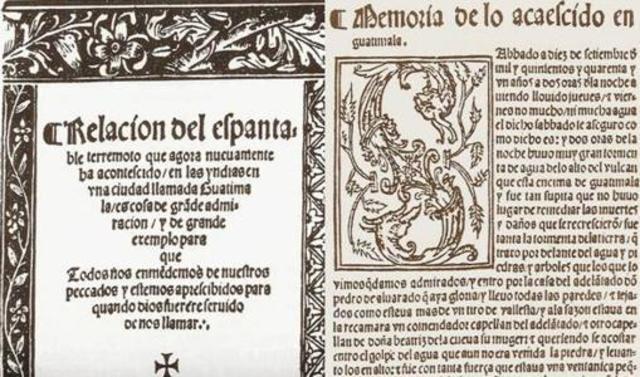 Relacion del espanta-
ble terremoto que agora nueuamente
ha acontescido/en las yndias en
vna ciudad llamada Guatima
la/es cosa de grãde admi-
racion/y de grande
exemplo para
que
Todos nos enmẽdemos de nuestros
peccados y estemos apresçibidos para
quando dios fuere seruido
de nos llamar.
Memoria de lo acaescido en
guatimala.
Sabbado a diez de setiembre d
mil y quinientos y quarenta y
vn años a dos oras dla noche a
uiendo llouido jueues/ t vier-
nes no mucho/ni mucha agua
el dicho sabbado se aseguro co
mo dicho es: y dos oras de la
noche huuo muy gran tormen
ta de agua de lo alto del vulcan
que esta encima de guatimala
y fue tan supita que no huuo
lugar de remediar las muertes
y daños que se recrescierõ/ fue
tanta la tormenta dela tierra/ q̃
traxo por delante del agua y pi
edras y arboles que los que lo
vimos q̃damos admirados/ y entro por la casa del adelãtado dõ
pedro de aluarado q̃ aya gloria/ y lleuo todas las paredes/ t teja-
dos como estaua mas de vn tiro de vallesta/ y a la sazon estaua en
la recamara vn comendador capellan del adelãtado/ t otro cape-
llan de doña beatriz de la cueua su muger/ t queriendo se acostar
entro el golpe del agua que aun no era venida la piedra/ y leuan-
to los en alto: t fue con tanta fuerça que estaua vna ventanica peq̃